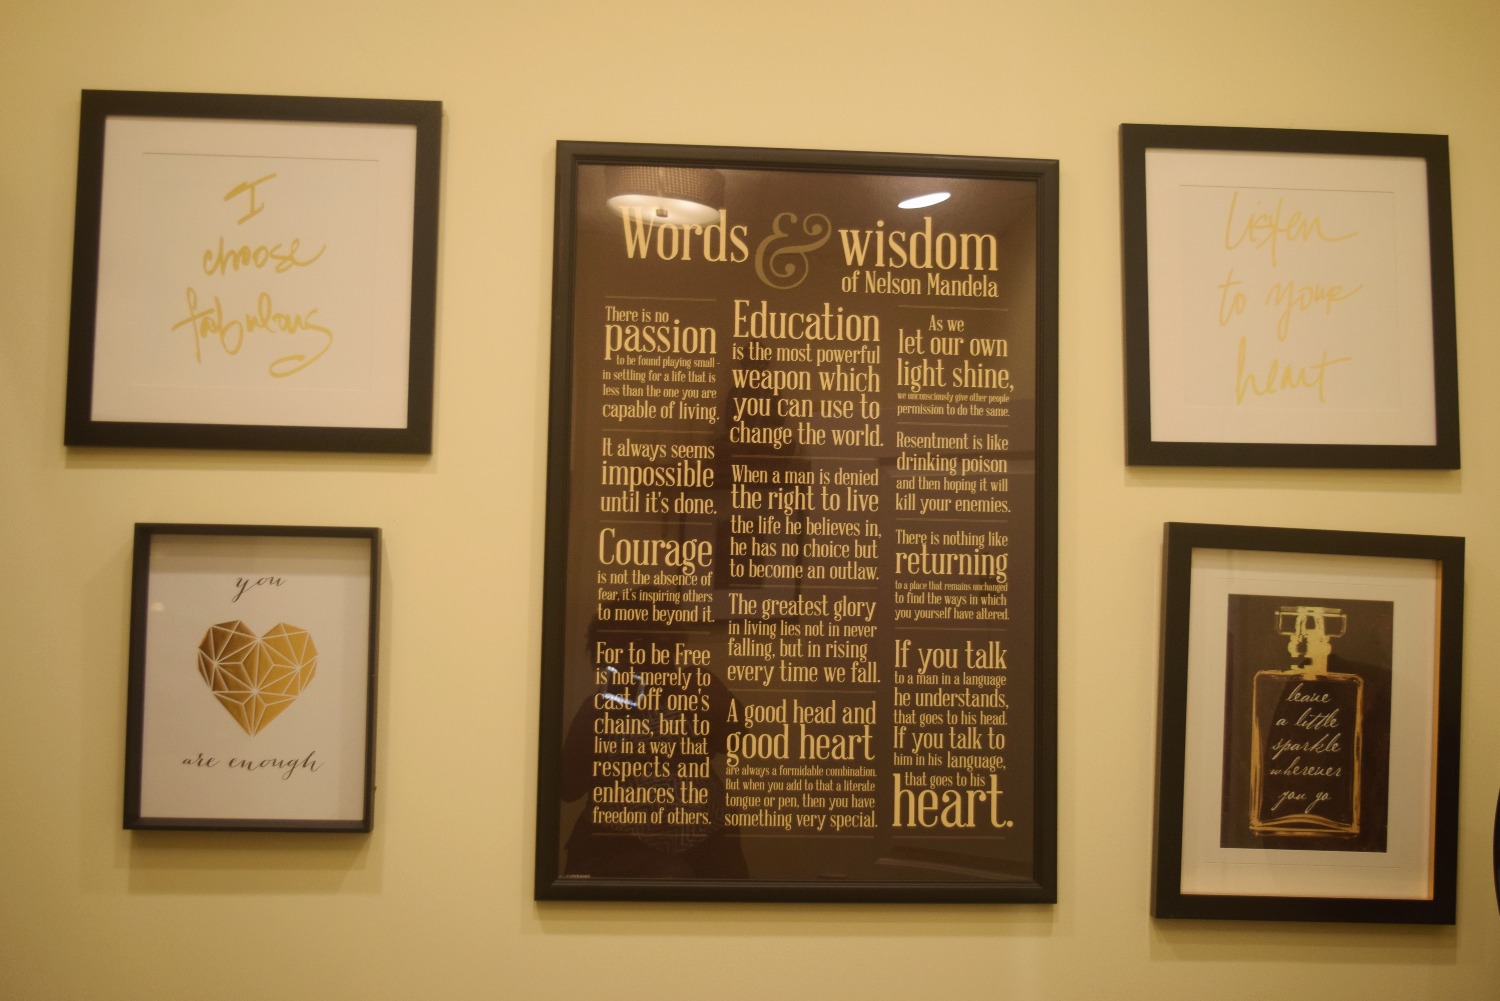 I
choose
fabulous
you
are enough
Words & wisdom
of Nelson Mandela
There is no
passion
to be found playing small -
in settling for a life that is
less than the one you are
capable of living.
It always seems
impossible
until it's done.
Courage
is not the absence of
fear, it's inspiring others
to move beyond it.
For to be Free
is not merely to
cast off one's
chains, but to
live in a way that
respects and
enhances the
freedom of others.
Education
is the most powerful
weapon which
you can use to
change the world.
When a man is denied
the right to live
the life he believes in,
he has no choice but
to become an outlaw.
The greatest glory
in living lies not in never
falling, but in rising
every time we fall.
A good head and
good heart
are always a formidable combination.
But when you add to that a literate
tongue or pen, then you have
something very special.
As we
let our own
light shine,
we unconsciously give other people
permission to do the same.
Resentment is like
drinking poison
and then hoping it will
kill your enemies.
There is nothing like
returning
to a place that remains unchanged
to find the ways in which
you yourself have altered.
If you talk
to a man in a language
he understands,
that goes to his head.
If you talk to
him in his language,
that goes to his
heart.
Listen
to your
heart
leave
a little
sparkle
wherever
you go